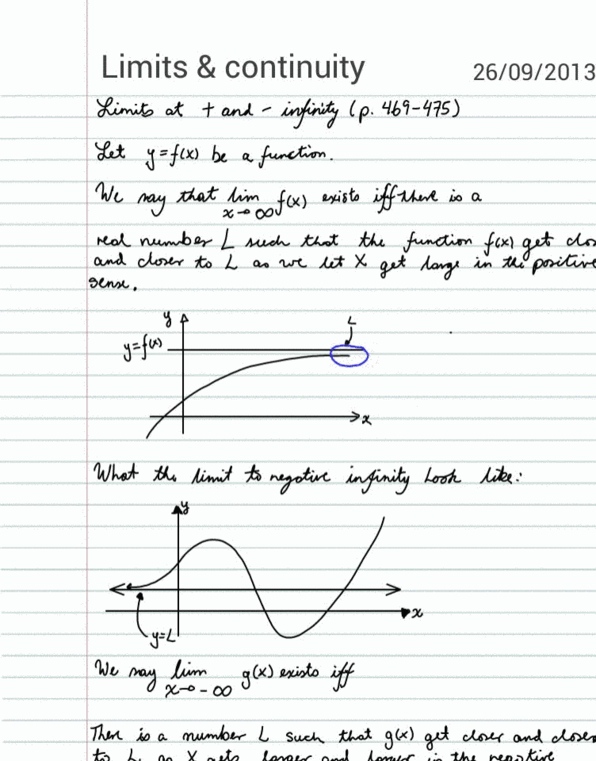 Limits & continuity
26/09/2013
Limits at + and - infinity (p. 469-475)
Let y=f(x) be a function.
We say that lim f(x) exists iff there is a
x→∞
real number L such that the function f(x) get clos
and closer to L as we let X get large in the positive
sense.
y
L
y=f(x)
x
What the limit to negative infinity look like:
y
x
y=L
We say lim g(x) exists iff
x→-∞
There is a number L such that g(x) get closer and closer
to L as X gets larger and larger in the negative